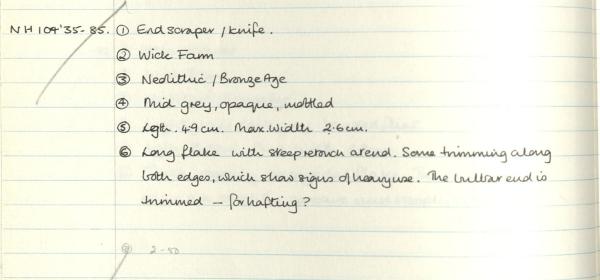 NH 104'35-85. ① End scraper / knife.
② Wick Farm
③ Neolithic / Bronze Age
④ Mid grey, opaque, mottled
⑤ Lgth. 4.9cm. Max. width 2.6cm.
⑥ Long flake with steep retouch at end. Some trimming along
both edges, which show signs of heavy use. The bulbar end is
trimmed — for hafting?
2-50